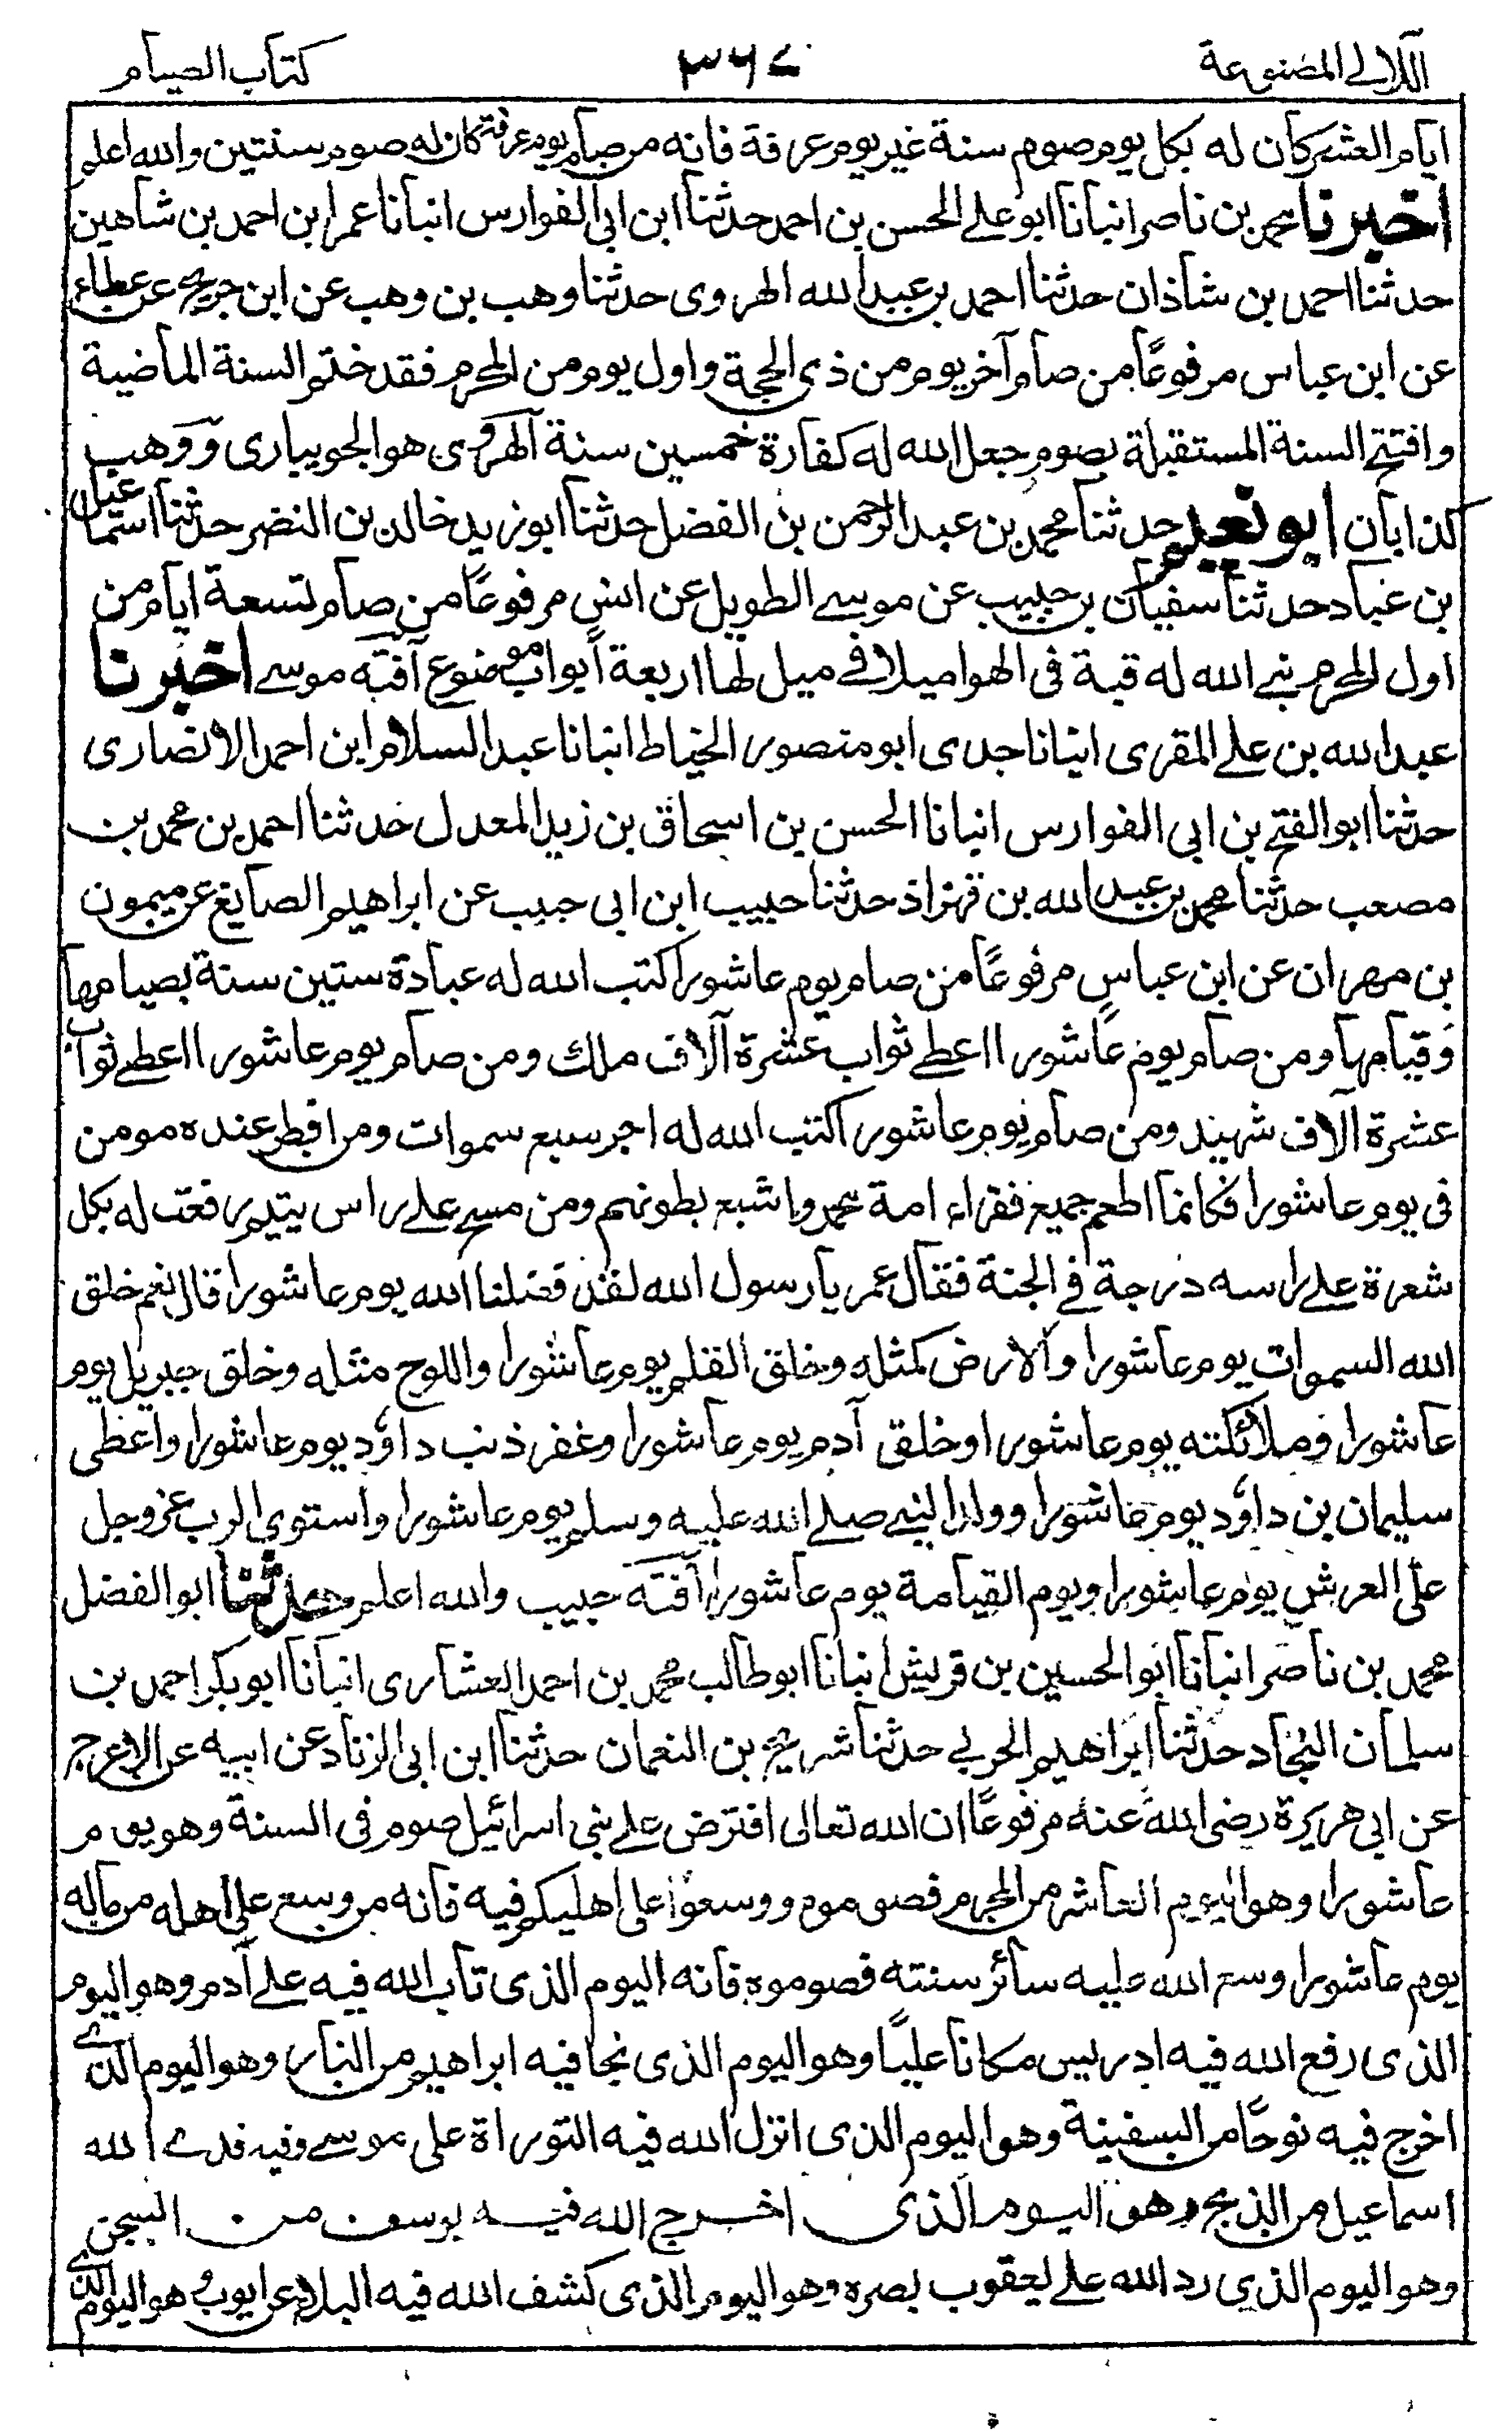 اللآلي المصنوعة
٣٦٤
كتاب الصيام
ايام العشر كان له بكل يوم صوم سنة غير يوم عرفة فانه من صام يوم عرفة كان له صوم سنتين والله اعلم
اخبرنا محمد بن ناصر انبأنا ابو علي الحسن بن احمد حدثنا ابن ابي الفوارس انبأنا عمر ابن احمد بن شاهين
حدثنا احمد بن شاذان حدثنا احمد بن عبد الله الهروى حدثنا وهب بن وهب عن ابن جريج عن عطاء
عن ابن عباس مرفوعًا من صام آخر يوم من ذى الحجة واول يوم من المحرم فقد ختم السنة الماضية
وافتتح السنة المستقبلة بصوم جعل الله له كفارة خمسين سنة الهروى هو الجويبارى و وهب
كذابان ابو نعيم حدثنا محمد بن عبد الرحمن بن الفضل حدثنا ابو زيد خالد بن النضر حدثنا اسماعيل
بن عباد حدثنا سفيان بن حبيب عن موسى الطويل عن انس مرفوعًا من صام تسعة ايام من
اول المحرم بنى الله له قبة فى الهوا ميلا في ميل لها اربعة ابواب موضوع آفته موسى اخبرنا
عبد الله بن علي المقرى انبانا جدى ابو منصور الخياط انبانا عبد السلام ابن احمد الانصارى
حدثنا ابو الفتح بن ابى الفوارس انبانا الحسن بن اسحاق بن زيد المعدل حدثنا احمد بن محمد بن
مصعب حدثنا محمد بن عبد الله بن قهزاذ حدثنا حبيب ابن ابى حبيب عن ابراهيم الصايغ عن ميمون
بن مهران عن ابن عباس مرفوعًا من صام يوم عاشورا كتب الله له عبادة ستين سنة بصيامها
وقيامها ومن صام يوم عاشورا اعطي ثواب عشرة آلاف ملك ومن صام يوم عاشورا اعطي ثواب
عشرة آلاف شهيد ومن صام يوم عاشورا كتب الله له اجر سبع سموات ومن افطر عنده مومن
فى يوم عاشورا فكانما اطعم جميع فقراء امة محمد واشبع بطونهم ومن مسح على راس يتيم رفعت له بكل
شعرة على راسه درجة في الجنة فقال عمر يا رسول الله لقد فضلنا الله يوم عاشورا قال نعم خلق
الله السموات يوم عاشورا والارض كمثله وخلق القلم يوم عاشورا واللوح مثله وخلق جبريل يوم
عاشورا وملائكته يوم عاشورا وخلق آدم يوم عاشورا وغفر ذنب داؤد يوم عاشورا واعطى
سليمان بن داؤد يوم عاشورا وولد النبي صلى الله عليه وسلم يوم عاشورا واستوى الرب عزوجل
على العرش يوم عاشورا ويوم القيامة يوم عاشورا آفته حبيب والله اعلم حدثنا ابو الفضل
محمد بن ناصر انبانا ابو الحسين بن قريش انبانا ابو طالب محمد بن احمد العشارى انبانا ابو بكر احمد بن
سلمان النجاد حدثنا ابراهيم الحربي حدثنا شريح بن النعمان حدثنا ابن ابى الزناد عن ابيه عن الاعرج
عن ابى هريرة رضى الله عنه مرفوعًا ان الله تعالى افترض على بنى اسرائيل صوم فى السنة وهو يوم
عاشورا وهو اليوم العاشر من المحرم فصوموه ووسعوا على اهليكم فيه فانه من وسع على اهله من ماله
يوم عاشورا وسع الله عليه سائر سنته فصوموه فانه اليوم الذى تاب الله فيه على آدم وهو اليوم
الذى رفع الله فيه ادريس مكانا عليًا وهو اليوم الذى نجا فيه ابراهيم من النار وهو اليوم الذى
اخرج فيه نوحًا من السفينة وهو اليوم الذى انزل الله فيه التوراة على موسى وفيه فدى الله
اسماعيل من الذبح وهو اليوم الذى اخرج الله فيه يوسف من السجن
وهو اليوم الذى رد الله على يعقوب بصره وهو اليوم الذى كشف الله فيه البلاء عن ايوب وهو اليوم الذى